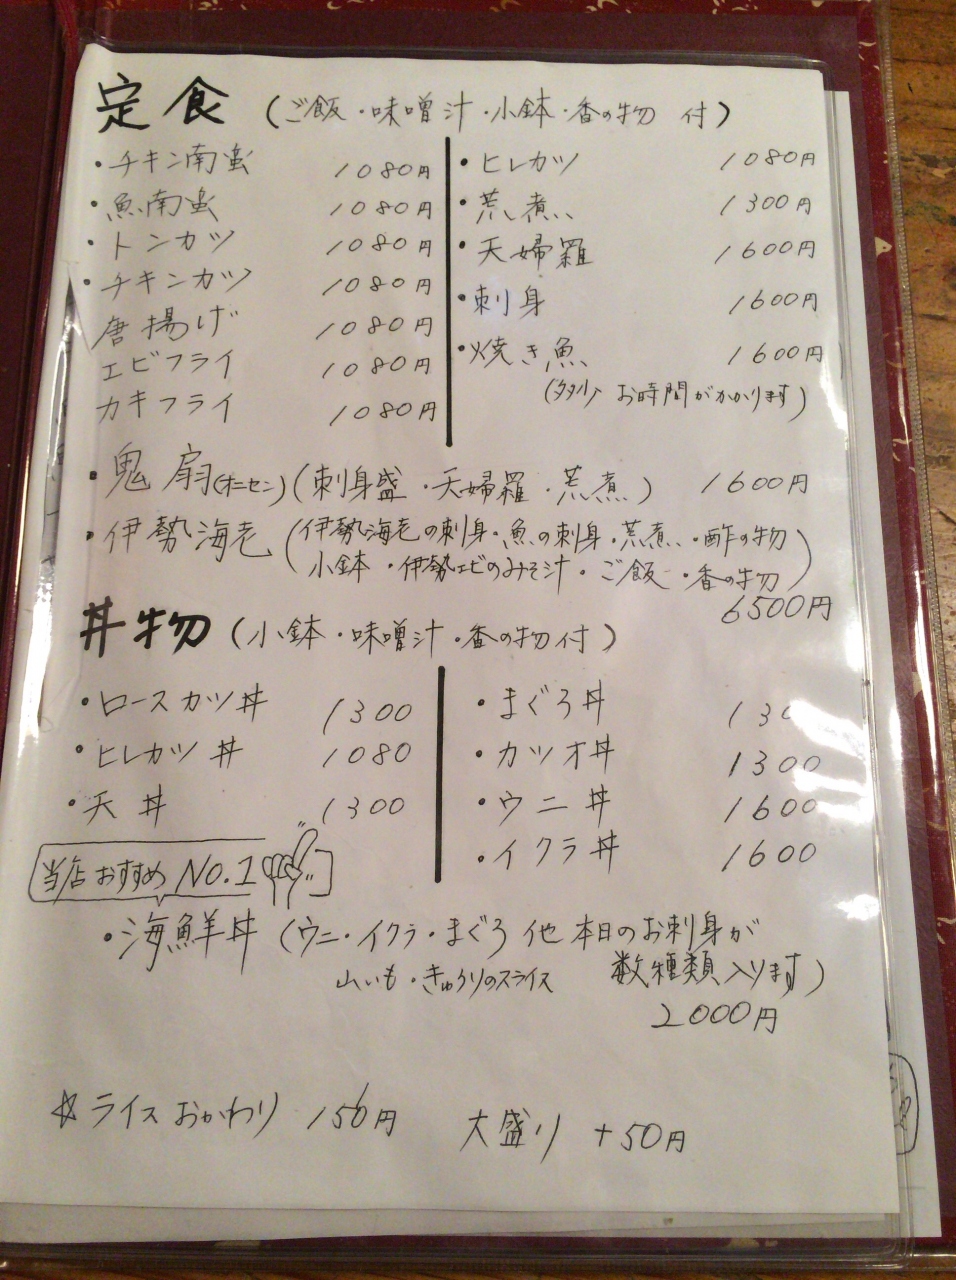 定食（ご飯・味噌汁・小鉢・香の物 付）
・チキン南蛮 1080円
・魚南蛮 1080円
・トンカツ 1080円
・チキンカツ 1080円
唐揚げ 1080円
エビフライ 1080円
カキフライ 1080円
・ヒレカツ 1080円
・荒煮 1300円
・天婦羅 1600円
・刺身 1600円
・焼き魚 1600円
（多少 お時間がかかります）
・鬼扇（オニセン）（刺身盛・天婦羅・荒煮） 1600円
・伊勢海老（伊勢海老の刺身・魚の刺身・荒煮・酢の物
小鉢・伊勢エビのみそ汁・ご飯・香の物）
6500円
丼物（小鉢・味噌汁・香の物付）
・ロースカツ丼 1300
・ヒレカツ丼 1080
・天丼 1300
・まぐろ丼 130
・カツオ丼 1300
・ウニ丼 1600
・イクラ丼 1600
当店おすすめ NO.1
・海鮮丼（ウニ・イクラ・まぐろ 他 本日のお刺身が
山いも・きゅうりのスライス 数種類入ります）
2000円
☆ライスおかわり 150円 大盛り +50円